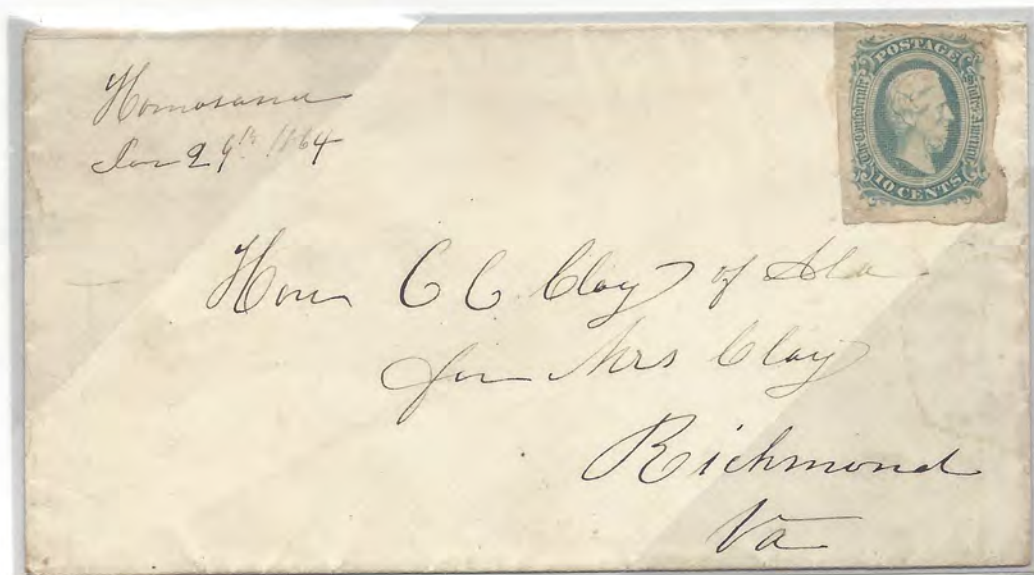 Homosassa
Jan 29th 1864
POSTAGE
The Confederate States of America
10 CENTS
Hon C C Clay of Ala
for Mrs Clay
Richmond
Va